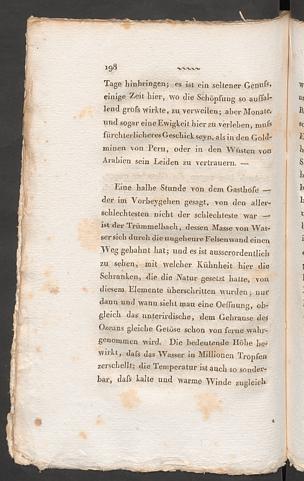 198
Tage hinbringen; es ist ein seltener Genuss,
einige Zeit hier, wo die Schöpfung so auffal-
lend gross wirkte, zu verweilen; aber Monate,
und sogar eine Ewigkeit hier zu verleben, muss
fürchterlicheres Geschick seyn, als in den Gold-
minen von Peru, oder in den Wüsten von
Arabien sein Leiden zu vertrauern. —
Eine halbe Stunde von dem Gasthofe —
der im Vorbeygehen gesagt, von den aller-
schlechtesten nicht der schlechteste war —
ist der Trümmelbach, dessen Masse von Was-
ser sich durch die ungeheure Felsenwand einen
Weg gebahnt hat; und es ist ausserordentlich
zu sehen, mit welcher Kühnheit hier die
Schranken, die die Natur gesetzt hatte, von
diesem Elemente überschritten wurden; nur
dann und wann sieht man eine Oeffnung, ob-
gleich das unterirdische, dem Gebrause des
Ozeans gleiche Getöse schon von ferne wahr-
genommen wird. Die bedeutende Höhe be-
wirkt, dass das Wasser in Millionen Tropfen
zerschellt; die Temperatur ist auch so sonder-
bar, dass kalte und warme Winde zugleich